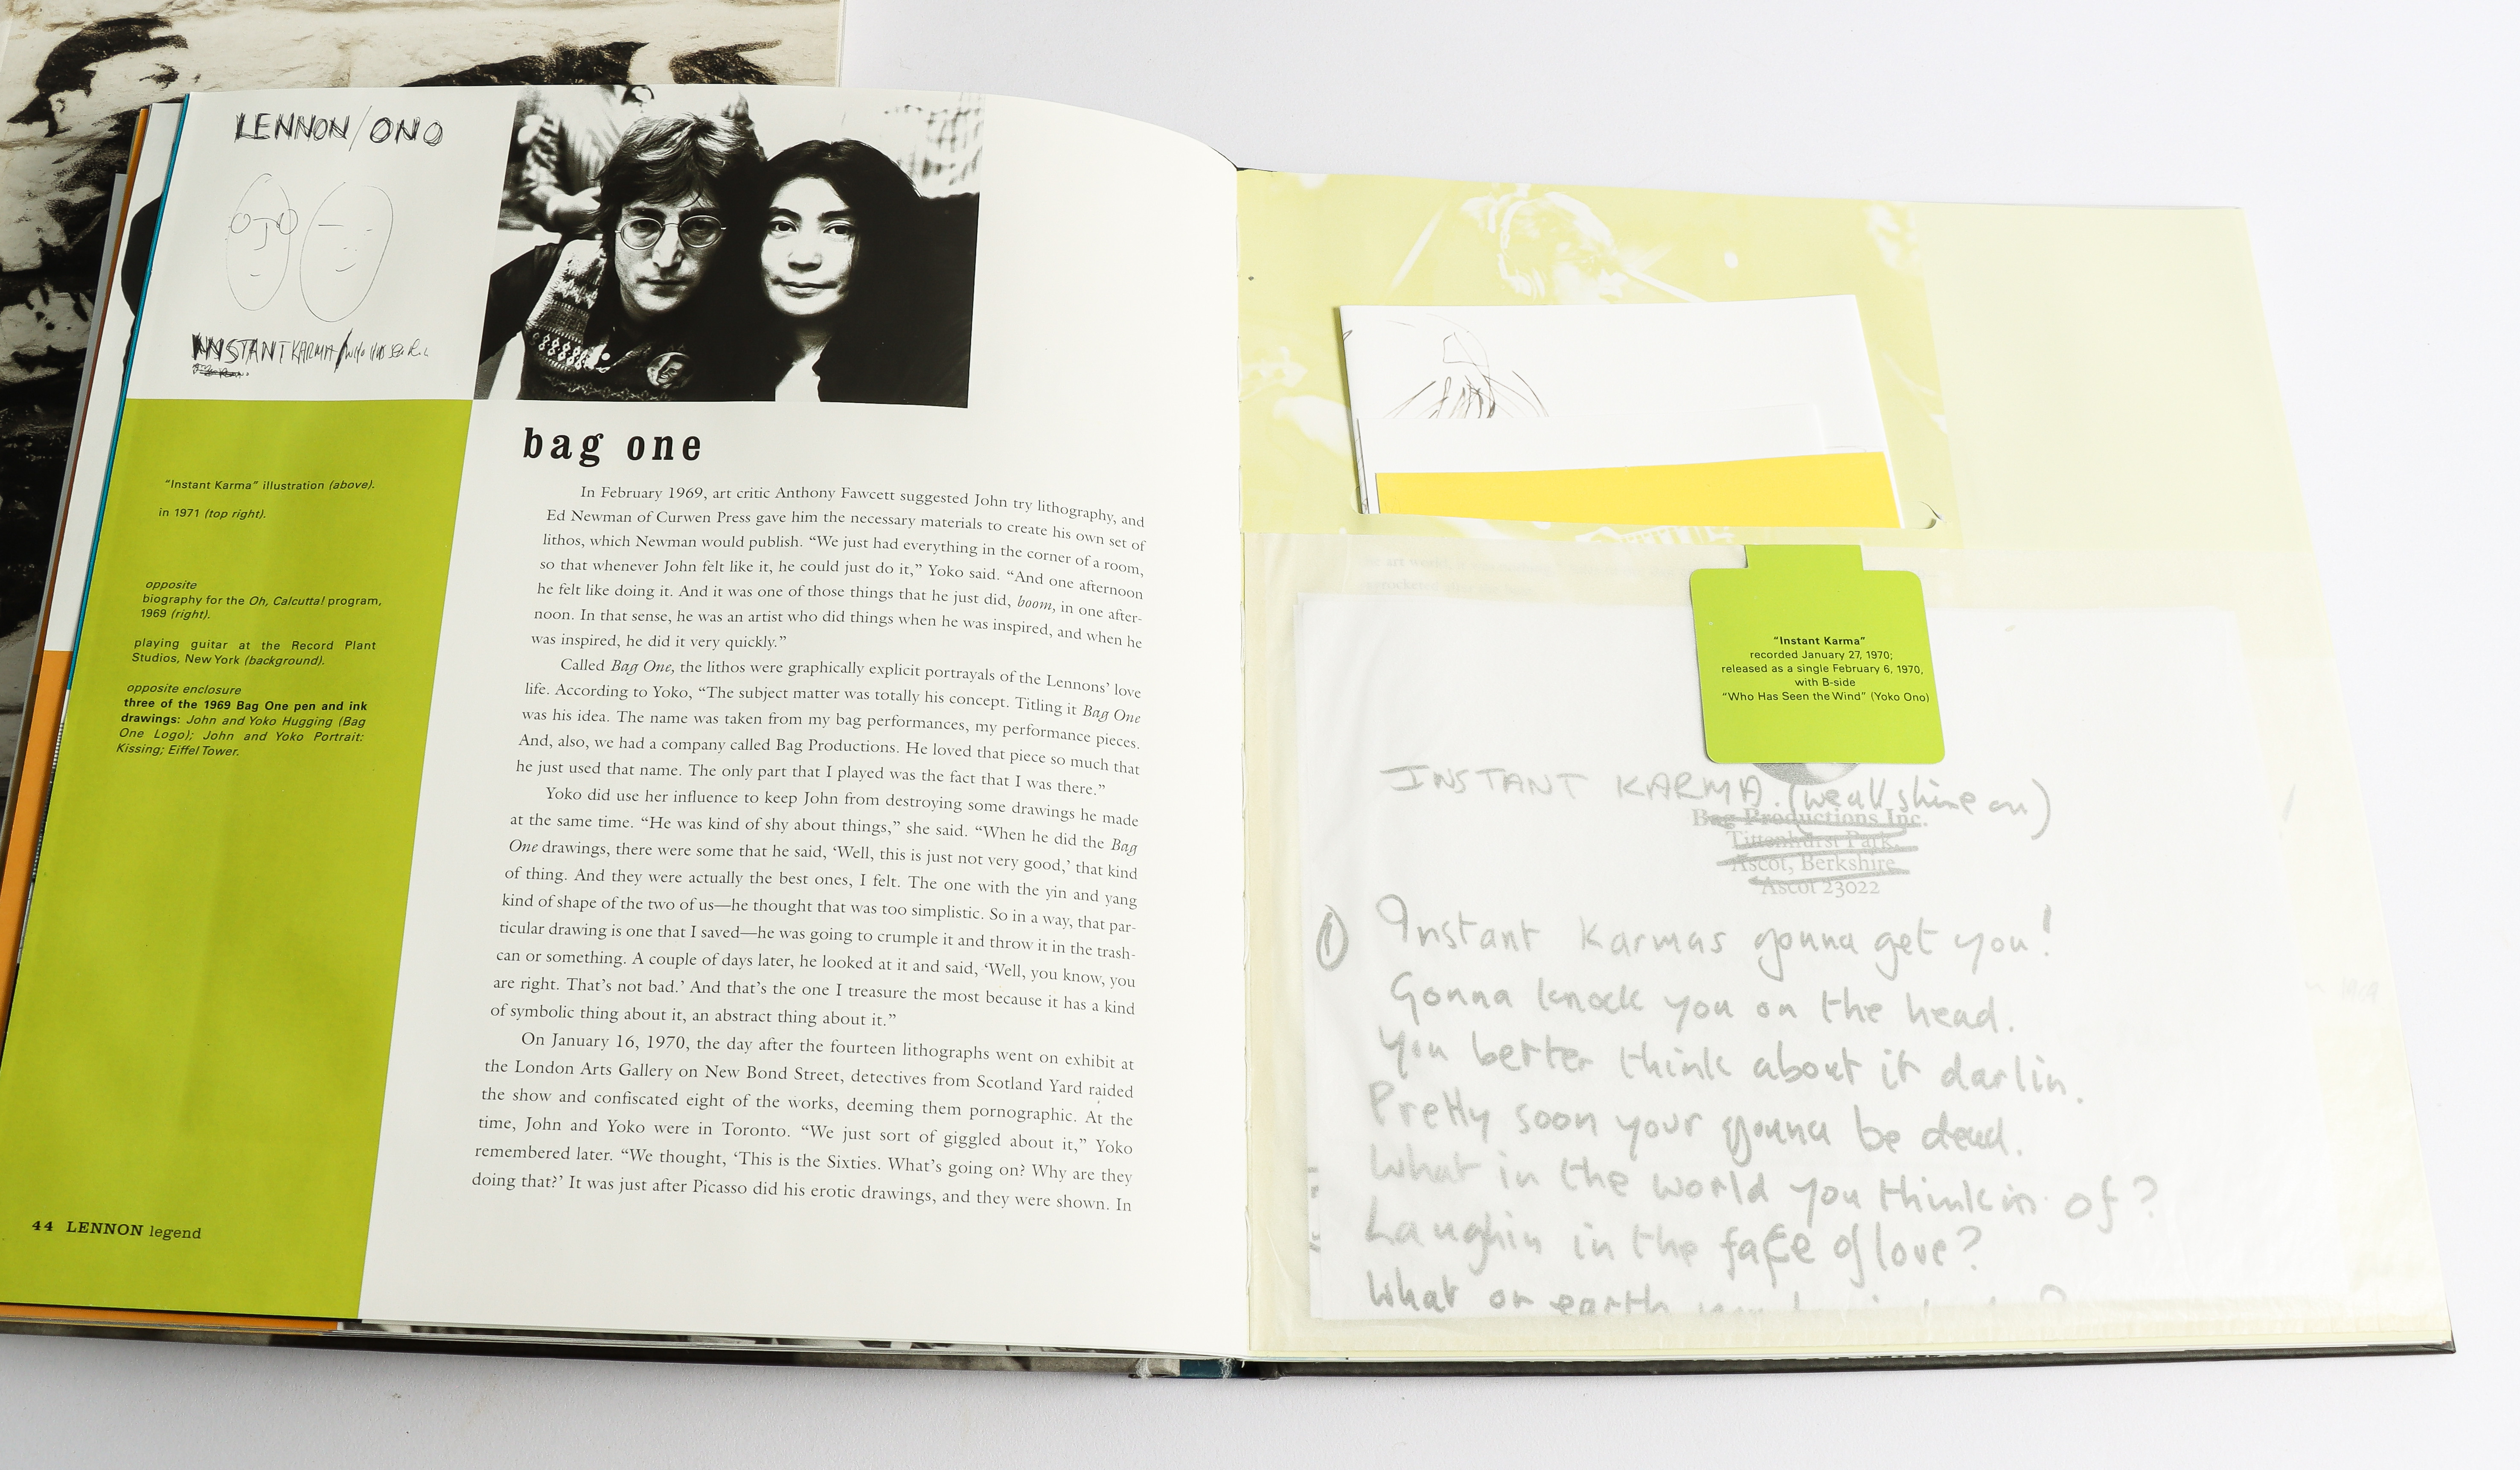 LENNON/ONO
INSTANT KARMA/WHO HAS SEEN
bag one
"Instant Karma" illustration (above).
in 1971 (top right).
opposite
biography for the Oh, Calcutta! program,
1969 (right).
playing guitar at the Record Plant
Studios, New York (background).
opposite enclosure
three of the 1969 Bag One pen and ink
drawings: John and Yoko Hugging (Bag
One Logo); John and Yoko Portrait:
Kissing; Eiffel Tower.
In February 1969, art critic Anthony Fawcett suggested John try lithography, and
Ed Newman of Curwen Press gave him the necessary materials to create his own set of
lithos, which Newman would publish. "We just had everything in the corner of a room,
so that whenever John felt like it, he could just do it," Yoko said. "And one afternoon
he felt like doing it. And it was one of those things that he just did, boom, in one after-
noon. In that sense, he was an artist who did things when he was inspired, and when he
was inspired, he did it very quickly."
Called Bag One, the lithos were graphically explicit portrayals of the Lennons' love
life. According to Yoko, "The subject matter was totally his concept. Titling it Bag One
was his idea. The name was taken from my bag performances, my performance pieces.
And, also, we had a company called Bag Productions. He loved that piece so much that
he just used that name. The only part that I played was the fact that I was there."
Yoko did use her influence to keep John from destroying some drawings he made
at the same time. "He was kind of shy about things," she said. "When he did the Bag
One drawings, there were some that he said, 'Well, this is just not very good,' that kind
of thing. And they were actually the best ones, I felt. The one with the yin and yang
kind of shape of the two of us—he thought that was too simplistic. So in a way, that par-
ticular drawing is one that I saved—he was going to crumple it and throw it in the trash-
can or something. A couple of days later, he looked at it and said, 'Well, you know, you
are right. That's not bad.' And that's the one I treasure the most because it has a kind
of symbolic thing about it, an abstract thing about it."
On January 16, 1970, the day after the fourteen lithographs went on exhibit at
the London Arts Gallery on New Bond Street, detectives from Scotland Yard raided
the show and confiscated eight of the works, deeming them pornographic. At the
time, John and Yoko were in Toronto. "We just sort of giggled about it," Yoko
remembered later. "We thought, 'This is the Sixties. What's going on? Why are they
doing that?' It was just after Picasso did his erotic drawings, and they were shown. In
44 LENNON legend
"Instant Karma"
recorded January 27, 1970;
released as a single February 6, 1970,
with B-side
"Who Has Seen the Wind" (Yoko Ono)
INSTANT KARMA. (we all shine on)
Bag Productions Inc.
Tittenhurst Park,
Ascot, Berkshire
Ascot 23022
① Instant Karmas gonna get you!
Gonna knock you on the head.
You better think about it darlin.
Pretty soon your gonna be dead.
What in the world you thinkin of?
Laughin in the face of love?
What on earth